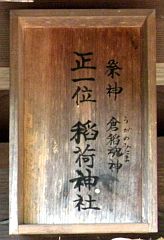 祭神 倉稲魂神
うがのみたま
正一位 稲荷神社